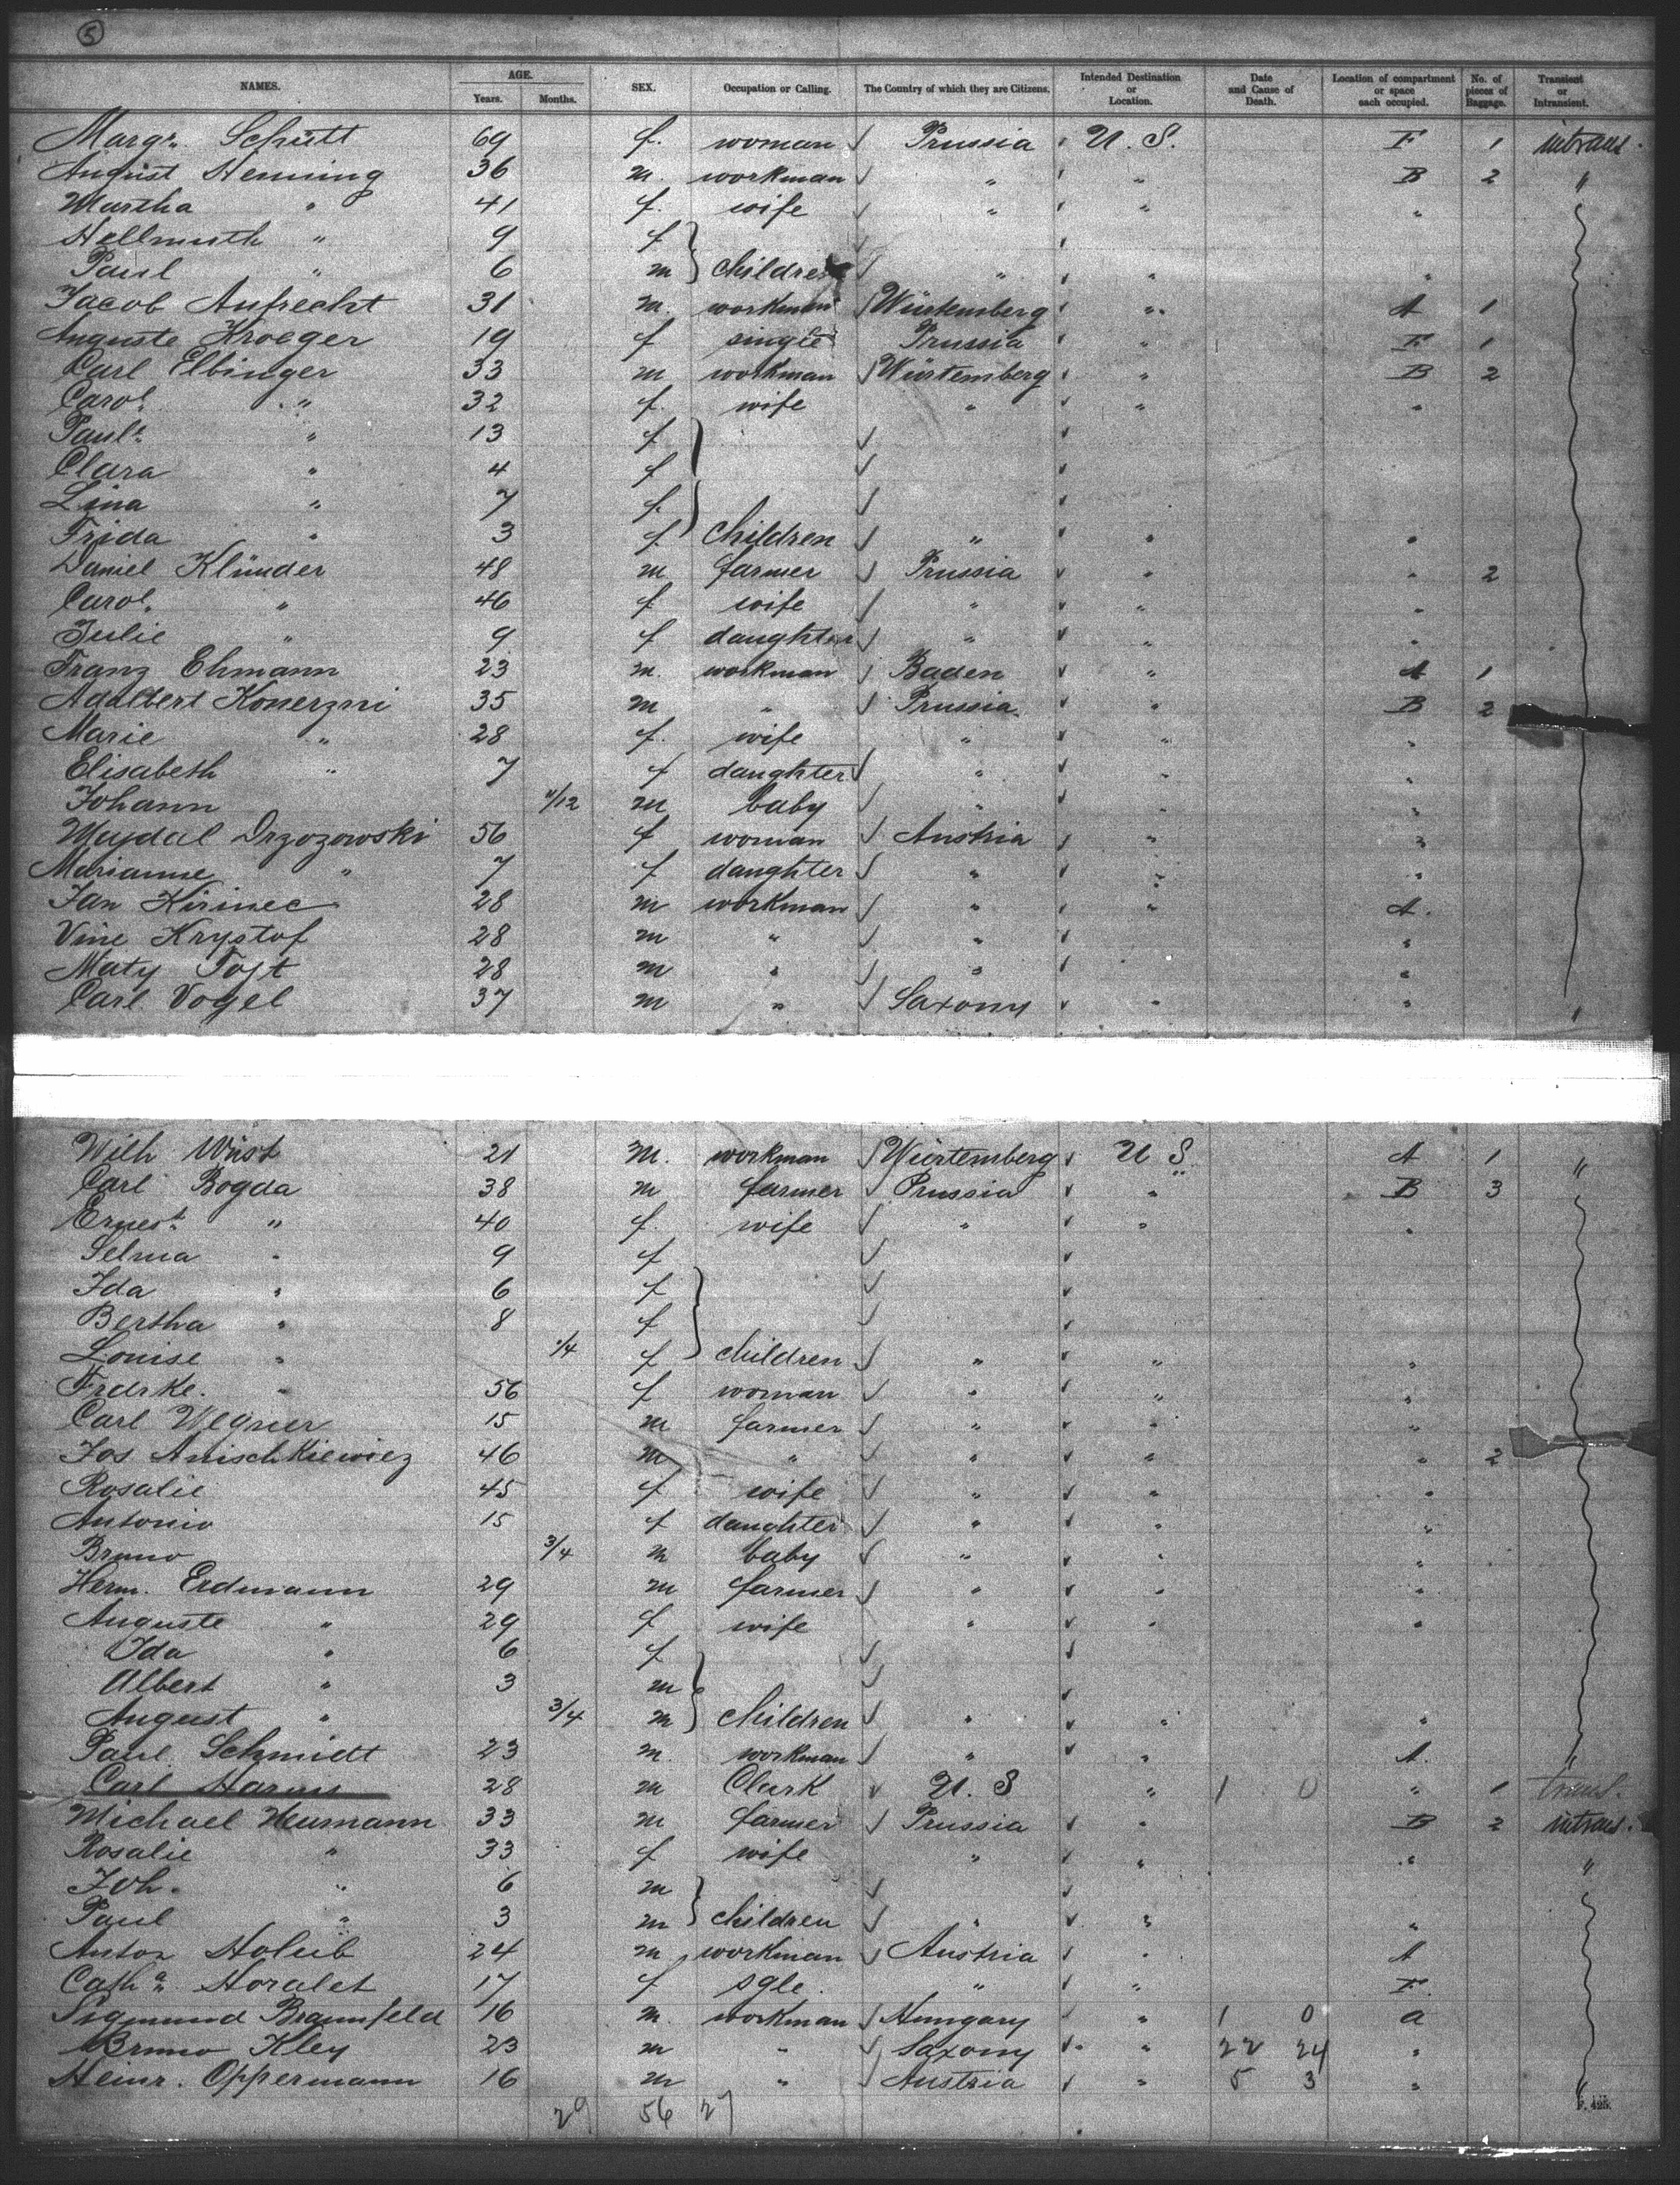 5
NAMES. AGE. Years. Months. SEX. Occupation or Calling. The Country of which they are Citizens. Intended Destination or Location. Date and Cause of Death. Location of compartment or space each occupied. No. of pieces of Baggage. Transient or Intransient.
Marg. Schütt 69 f. woman Prussia U. S. F 1 intrans.
August Henning 36 m. workman " " B 2 "
Martha " 41 f. wife " " "
Hellmuth " 9 f
Paul " 6 m children " " "
Jacob Aufrecht 31 m. workman Würtemberg " A 1
Auguste Kroeger 19 f single Prussia " F 1
Carl Elbinger 33 m workman Würtemberg " B 2
Carol. " 32 f. wife " " "
Paul. " 13 f
Clara " 4 f
Lina " 7 f.
Frida " 3 f children " " "
Daniel Klünder 48 m farmer Prussia " " 2
Carol. " 46 f wife " " "
Julie " 9 f daughter " " "
Franz Ehmann 23 m. workman Baden " A 1
Adalbert Konerzni 35 m " Prussia " B 2
Marie " 28 f. wife " " "
Elisabeth " 7 f daughter " " "
Johann 11/12 m baby " " "
Drzozowski 56 f woman Austria " "
Marianne " 7 f daughter " " "
Jan Kirinec 28 m workman " " A.
Vine Krystof 28 m " " "
Maty 28 m " " "
Carl Vogel 37 m " Saxony " "
Wilh Wüst 21 m. workman Würtemberg U S A 1 "
Carl Bogda 38 m farmer Prussia " B 3
Ernest. " 40 f. wife " " "
Selma " 9 f
Ida " 6 f
Bertha " 8 f
Louise " 1/4 f children " " "
Frdrke. " 56 f woman " " "
Carl Wegner 15 m farmer " " "
Jos Anischkiewicz 46 m " " " " 2
Rosalie 45 f wife " " "
Antonio 15 f daughter " " "
Bruno 3/4 m baby " " "
Herm. Erdmann 29 m farmer " " "
Auguste " 29 f wife " " "
Ida " 6 f
Albert " 3 m
August " 3/4 m children " " "
Paul Schmidt 23 m. workman " " A. "
Carl Harms 28 m Clerk U. S " 1 0 " 1 trans.
Michael Neumann 33 m farmer Prussia " B 2 intrans.
Rosalie " 33 f wife " " " "
Joh. " 6 m
Paul " 3 m children " " "
Anton Holub 24 m workman Austria " A
Cath. Horalet 17 f sgle. " " F.
Sigmund Braunfeld 16 m. workman Hungary " 1 0 a
Bruno Kley 23 m " Saxony " 22 24 "
Heinr. Oppermann 16 m " Austria " 5 3 " "
29 56 27